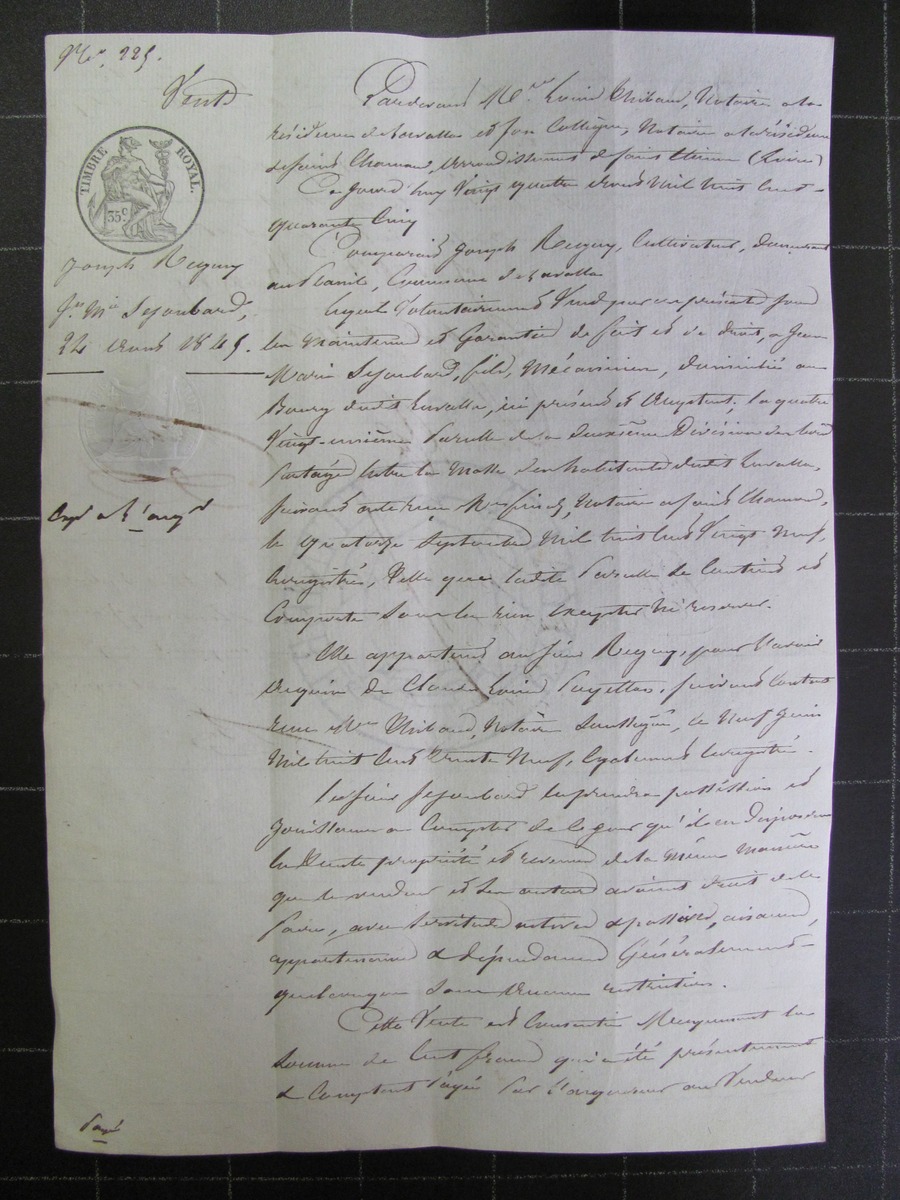 N.° 225.
Vente
TIMBRE ROYAL.
35 c.
Joseph Reguy
Jn Mie Sejoubard,
24 avril 1845.
Expé à l'acqr
Payé
Pardevant Me Louis Thibaud, Notaire à la
résidence de Lavalla et son Collègue, Notaire à la résidence
de Saint Chamond, arrondissement de Saint Etienne (Loire)
Ce jourd'huy Vingt quatre avril Mil huit Cent
quarante Cinq
Comparait Joseph Reguy, Cultivateur, demeurant
au Planil, Commune de Lavalla
Lequel Volontairement Vend par ces présentes sous
les Maintenue et Garantie de fait et de droit, a Jean
Marie Sejoubard, fils, Mécanicien, domicilié au
Bourg dudit Lavalla, ici présent et acceptant, la quatre
Vingt-unième Parcelle de la deuxième Division des bois
partagés entre la Masse des habitants dudit Lavalla,
suivant acte reçu Me Finaz, Notaire à Saint Chamond,
le quatorze Septembre Mil huit Cent Vingt Neuf,
Enregistré, Telle que ladite Parcelle se Contient et
Comporte Sans en rien Excepter Ni réserver.
Elle appartient au Sieur Reguy, pour l'avoir
acquise de Claude Louis Payettas, suivant Contrat
reçu Me Thibaud, Notaire Soussigné, le Neuf Juin
Mil huit Cent Trente Neuf, Egalement Enregistré.
Le Sieur Sejoubard en prendra possession et
Jouissance a Compter de ce jour qu'il en disposera
En Toute propriété et revenus de la Même Manière
que le vendeur et Ses auteurs avaient droit de le
faire, avec Servitudes actives & passives, aisances,
appartenances & dépendances Généralement
quelconques Sans aucune restriction.
Cette Vente est Consentie Moyennant la
Somme de Cent francs qui a été présentement
& Comptant Payée Par l'acquéreur au Vendeur